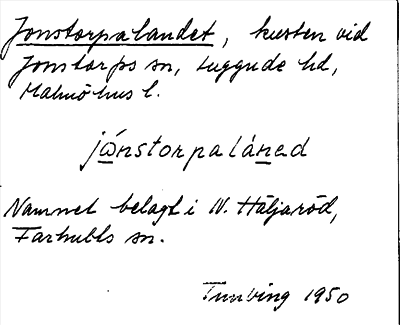 Jonstorpalandet, kusten vid
Jonstorps sn, Luggude hd,
Malmöhus l.
jónstorpaláned
Namnet belagt i N. Häljaröd,
Farhults sn.
Tunving 1950